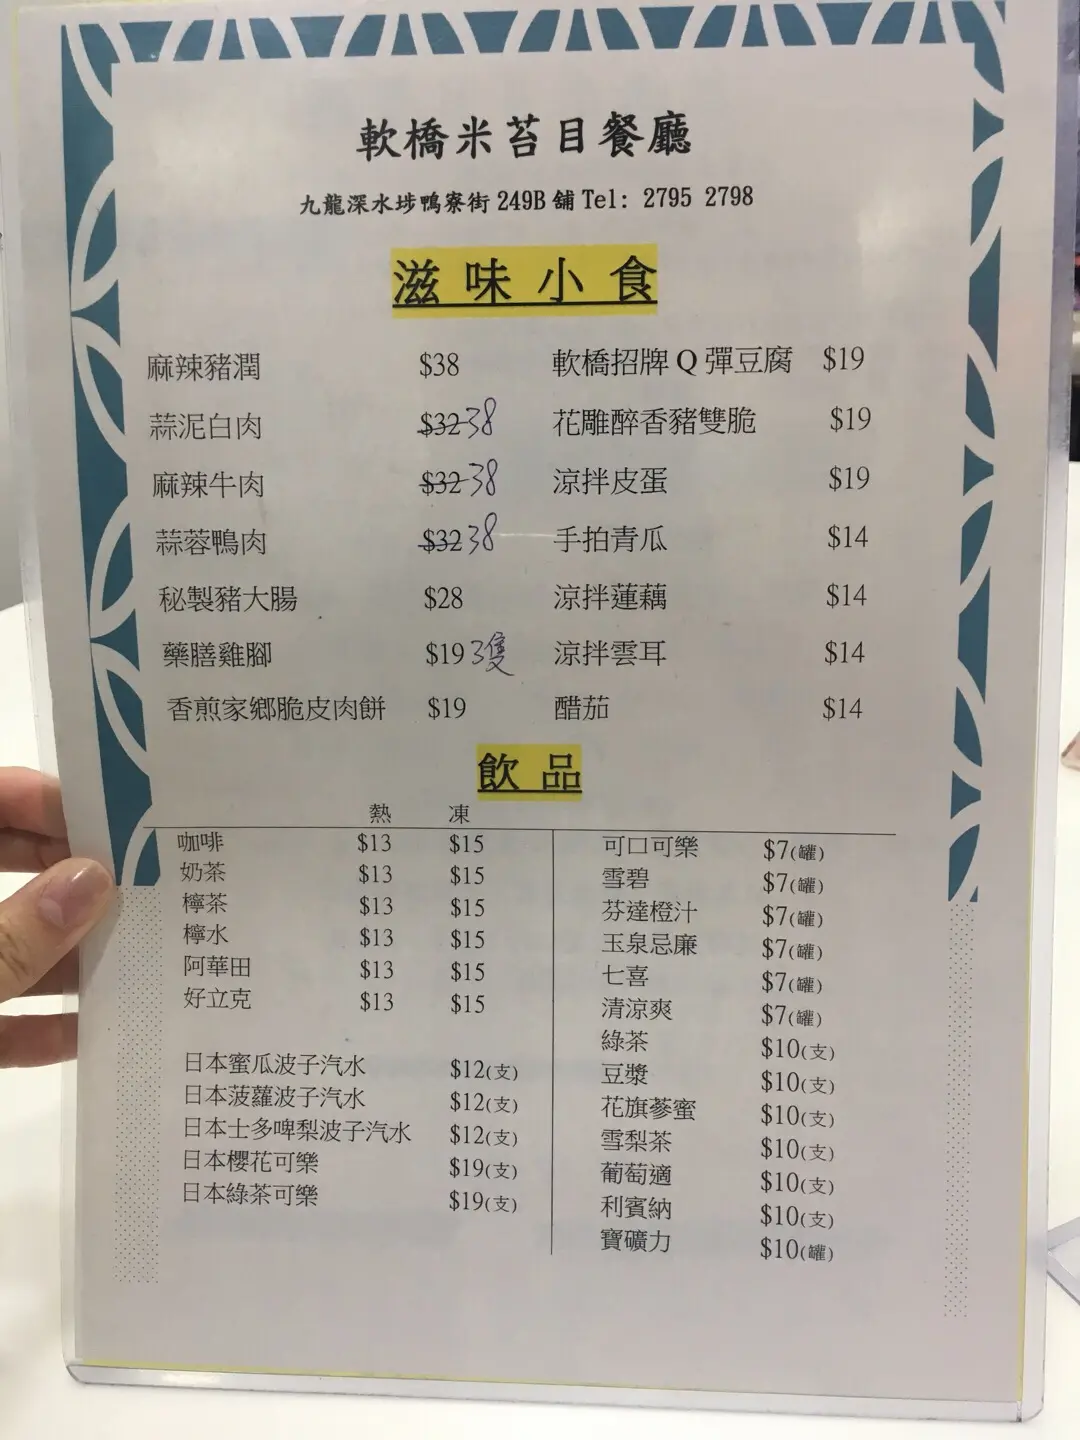 軟橋米苔目餐廳
九龍深水埗鴨寮街 249B 舖 Tel: 2795 2798
滋味小食
麻辣豬潤 $38 軟橋招牌 Q 彈豆腐 $19
蒜泥白肉 $32 38 花雕醉香豬雙脆 $19
麻辣牛肉 $32 38 涼拌皮蛋 $19
蒜蓉鴨肉 $32 38 手拍青瓜 $14
秘製豬大腸 $28 涼拌蓮藕 $14
藥膳雞腳 $19 3隻 涼拌雲耳 $14
香煎家鄉脆皮肉餅 $19 醋茄 $14
飲品
熱 凍
咖啡 $13 $15
奶茶 $13 $15
檸茶 $13 $15
檸水 $13 $15
阿華田 $13 $15
好立克 $13 $15
日本蜜瓜波子汽水 $12(支)
日本菠蘿波子汽水 $12(支)
日本士多啤梨波子汽水 $12(支)
日本櫻花可樂 $19(支)
日本綠茶可樂 $19(支)
可口可樂 $7(罐)
雪碧 $7(罐)
芬達橙汁 $7(罐)
玉泉忌廉 $7(罐)
七喜 $7(罐)
清涼爽 $7(罐)
綠茶 $10(支)
豆漿 $10(支)
花旗蔘蜜 $10(支)
雪梨茶 $10(支)
葡萄適 $10(支)
利賓納 $10(支)
寶礦力 $10(罐)